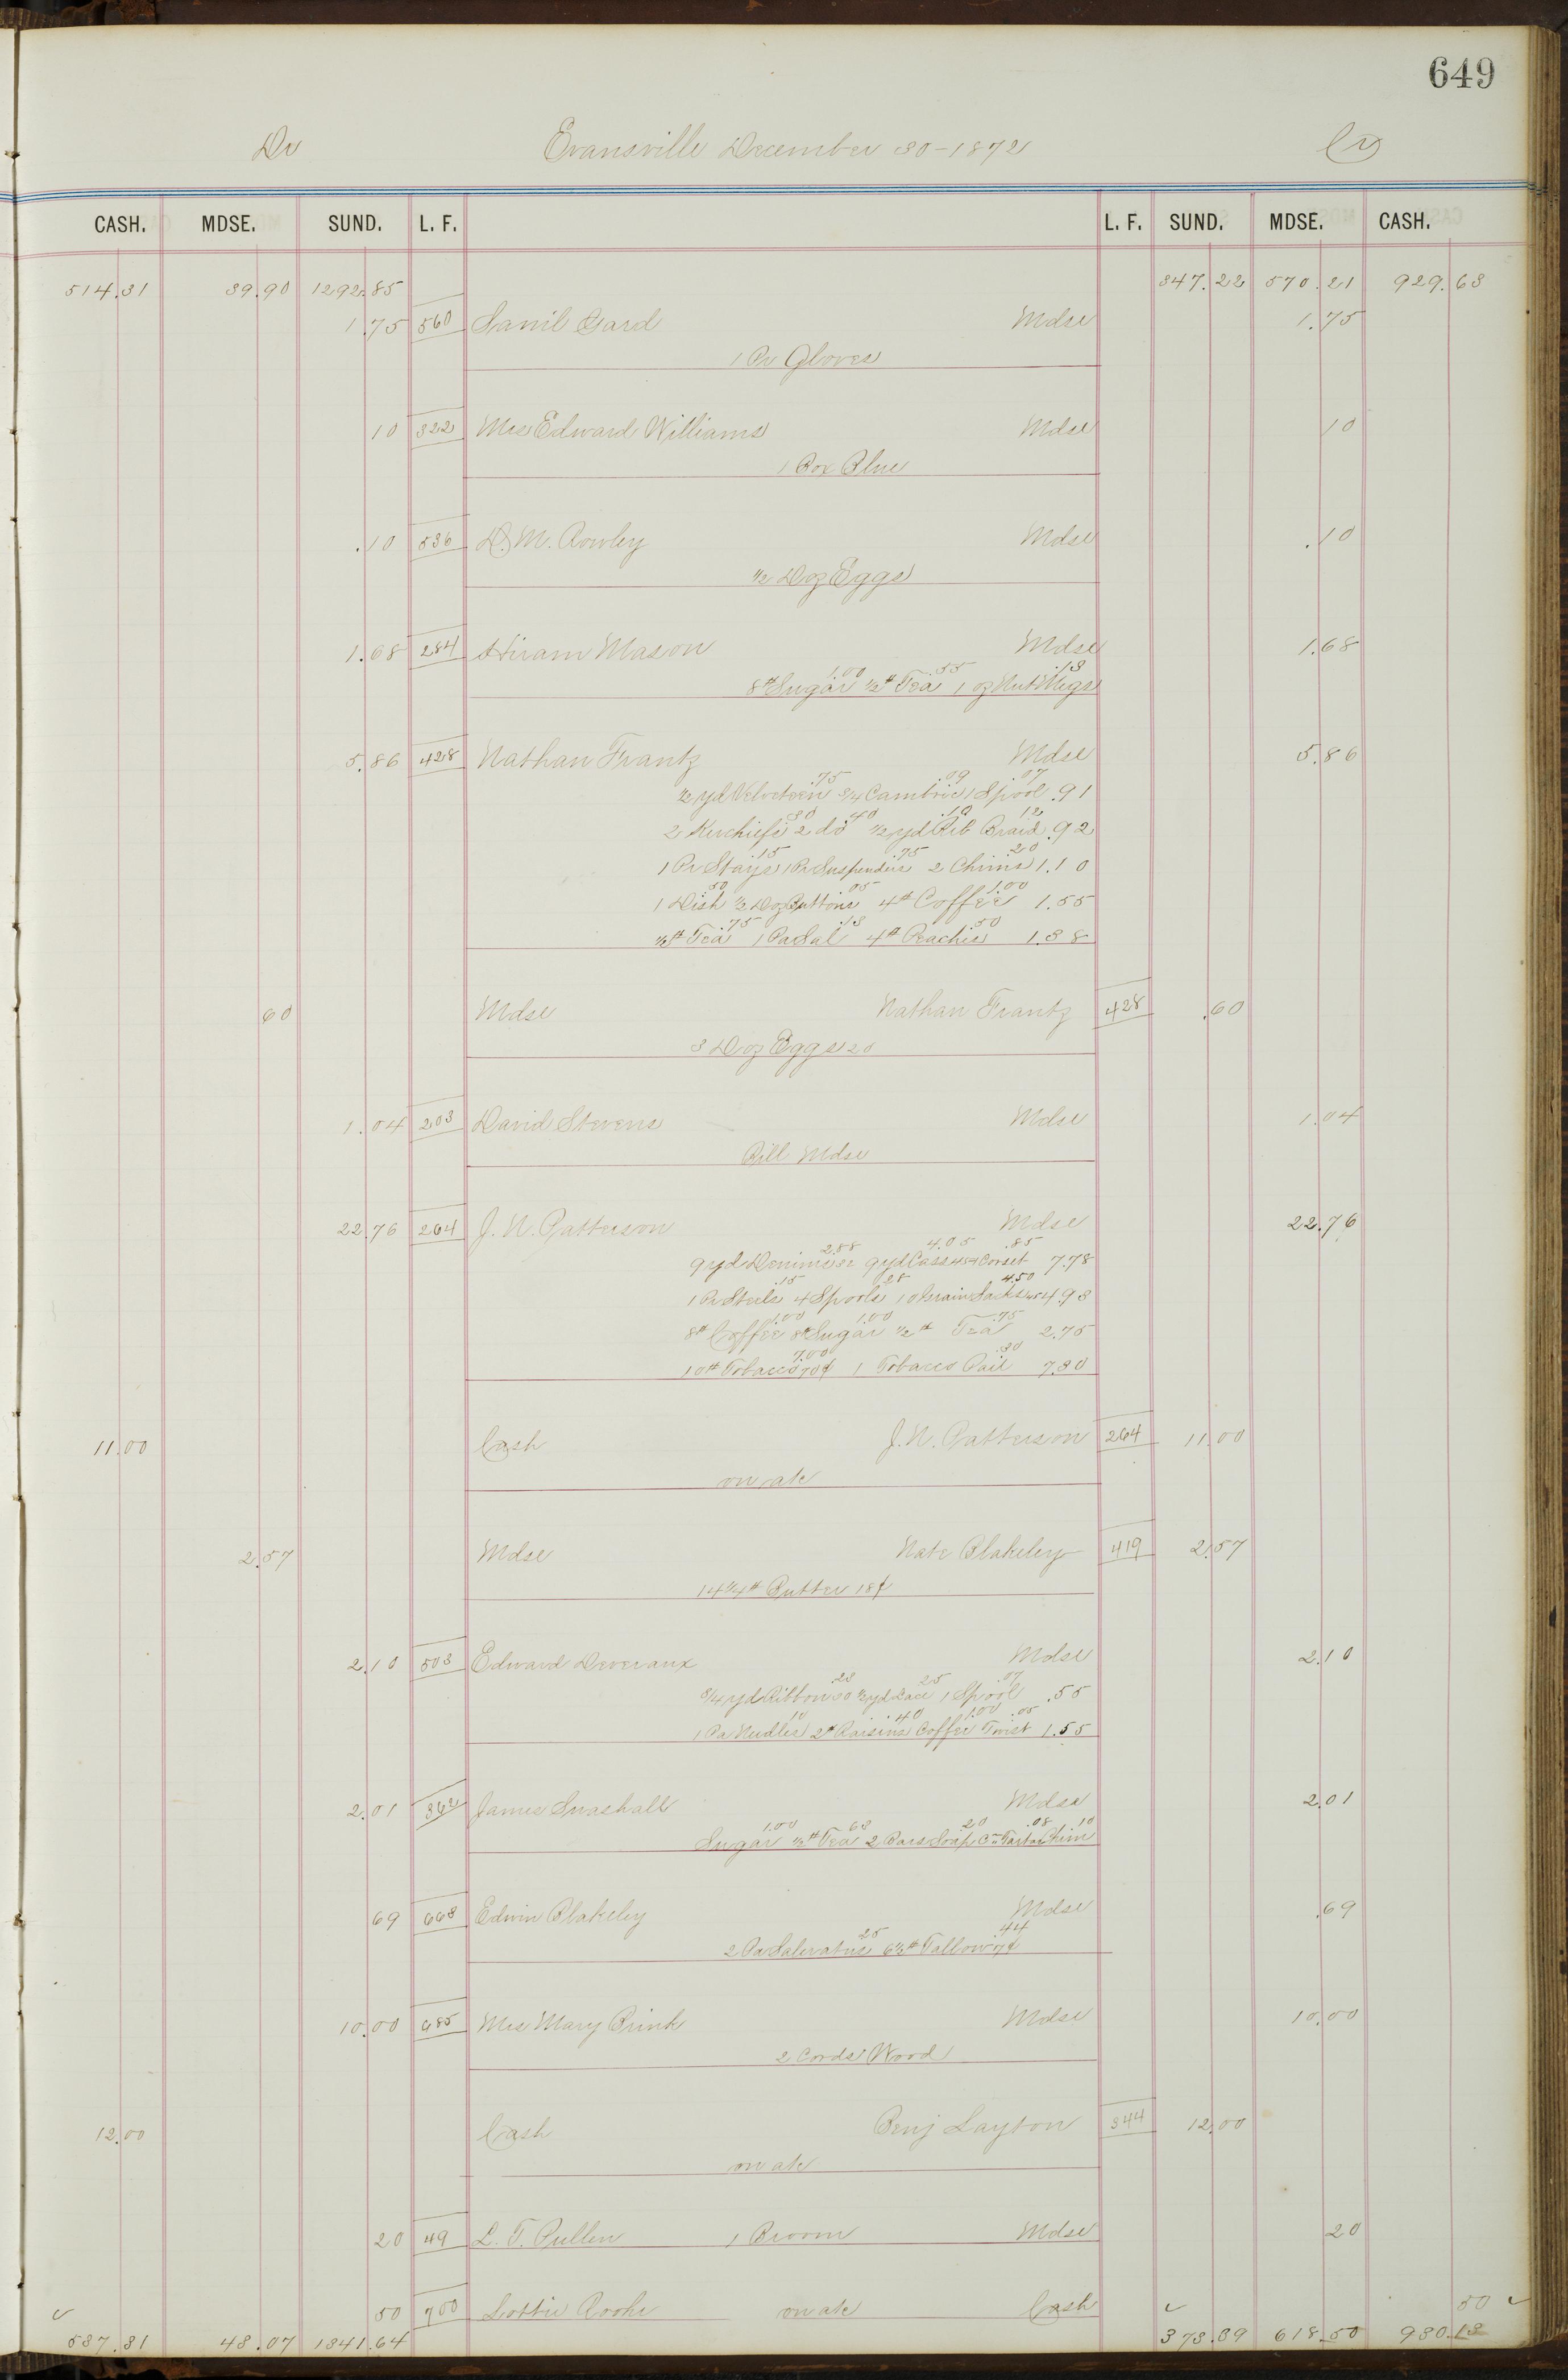 649
Dr Evansville December 30-1872 Cr
CASH. MDSE. SUND. L. F. L. F. SUND. MDSE. CASH.
514.31 39.90 1292.85 347.22 570.21 929.63
1.75 560 Saml Gard Mdse 1.75
1 Pr Gloves
10 322 Mrs Edward Williams Mdse 10
1 Box Blue
.10 536 D. M. Rowley Mdse .10
1/2 Doz Eggs
1.68 284 Hiram Mason Mdse 1.68
1.00 .55 .13
8# Sugar 1/2# Tea 1 oz Nut Megs
5.86 428 Nathan Frantz Mdse 5.86
.75 .09 .07
1/2 yd Velveteen 3/4 Cambric 1 Spool .91
30 .40 .10 12
2 Kerchiefs 2 do 1/2 yd Rib Braid .92
15 .75 .20
1 Pr Stays 1 Pr Suspenders 2 Chims 1.10
.50 05 1.00
1 Dish 1/2 Doz Buttons 4# Coffee 1.55
.75 .13 50
1/2# Tea 1 Pa Sal 4# Peaches 1.38
60 Mdse Nathan Frantz 428 .60
3 Doz Eggs 20
1.04 203 David Stevens Mdse 1.04
Bill Mdse
22.76 264 J. N. Patterson Mdse 22.76
2.88 4.05 .85
9 yd Denims 32 9 yd Cass 45 1 Corset 7.78
.15 28 4.50
1 Pr Steels 4 Spools 10 Grain Sacks 45 4.93
1.00 1.00 .75
8# Coffee 8# Sugar 1/2# Tea 2.75
7.00 .30
10# Tobacco 70¢ 1 Tobacco Pail 7.30
11.00 Cash J. N. Patterson 264 11.00
on a/c
2.57 Mdse Nate Blakeley 419 2.57
14 1/4# Butter 18¢
2.10 503 Edward Deveraux Mdse 2.10
.23 25 .07
3/4 yd Ribbon 30 1/2 yd Lace 1 Spool .55
10 .40 1.00 .05
1 Pa Needles 2# Raisins Coffee Twist 1.55
2.01 362 James Snashall Mdse 2.01
1.00 63 20 .08 10
Sugar 1/2# Tea 2 Bars Soap Cm Tartar Chim
69 668 Edwin Blakeley Mdse .69
25 .44
2 Pa Saleratus 6 1/3# Tallow 7¢
10.00 685 Mrs Mary Brink Mdse 10.00
2 Cords Wood
12.00 Cash Benj Layton 344 12.00
on a/c
20 49 L. T. Pullen 1 Broom Mdse 20
50 700 Lottie on a/c Cash 50
537.31 43.07 1341.64 373.39 618.50 930.13